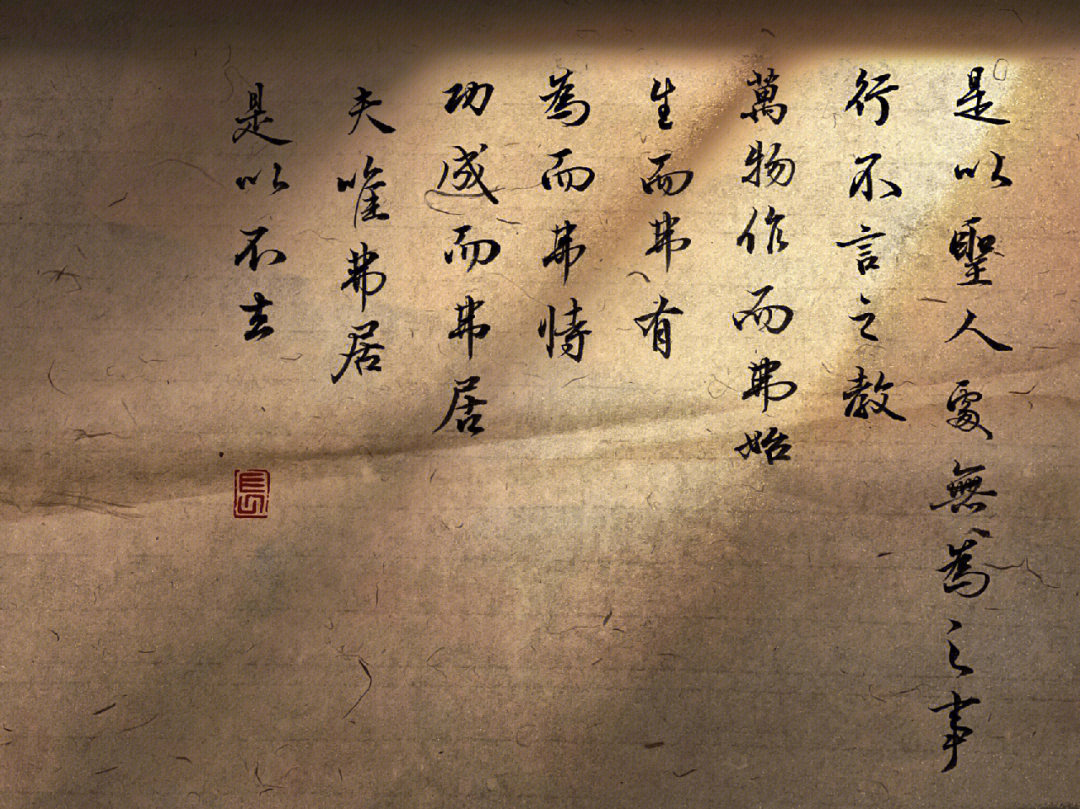 是以聖人處無為之事
行不言之教
萬物作而弗始
生而弗有
為而弗恃
功成而弗居
夫唯弗居
是以不去